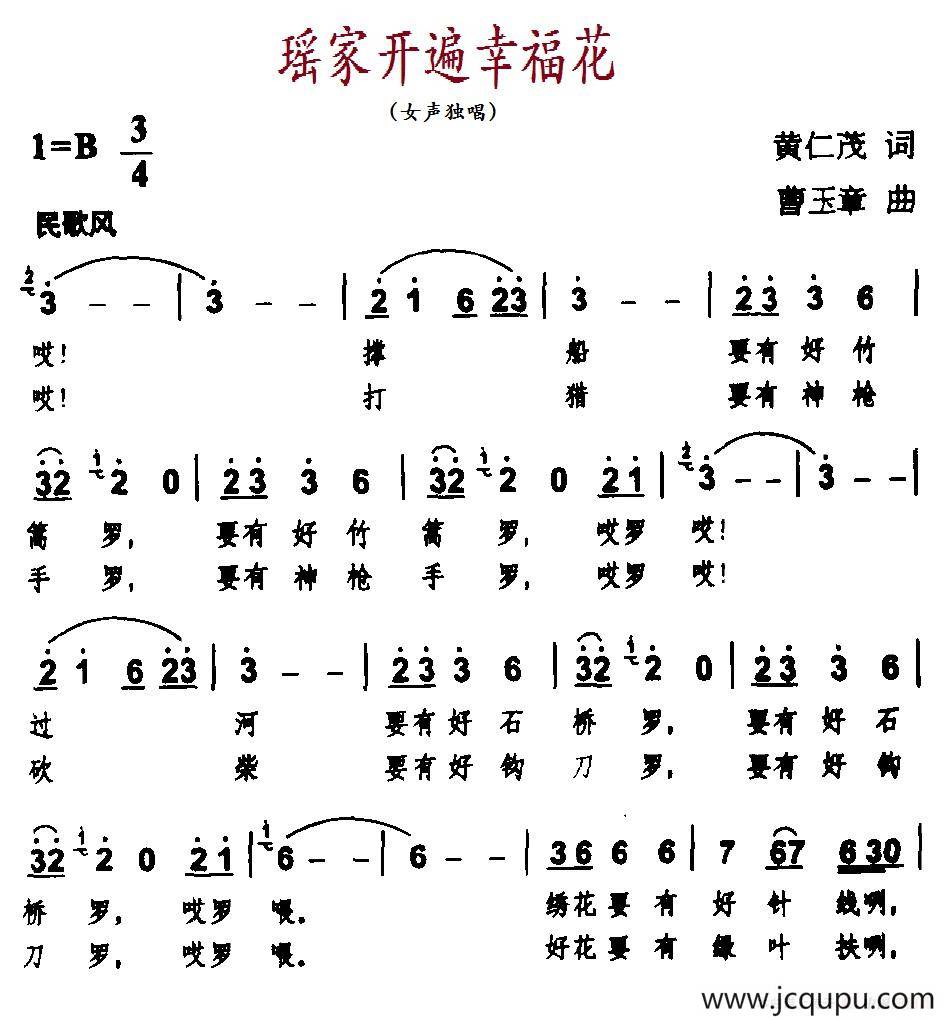 瑶家开遍幸福花
(女声独唱)
1=B 3/4
黄仁茂 词
曹玉章 曲
民歌风
2 3 - - | 3 - - | 2 1 6 23 | 3 - - | 23 3 6 |
哎! 撑 船 要有好竹
哎! 打 猎 要有神枪
32 1 2 0 | 23 3 6 | 32 1 2 0 21 | 2 3 - - | 3 - - |
篙 罗, 要有好竹 篙 罗, 哎罗 哎!
手 罗, 要有神枪 手 罗, 哎罗 哎!
2 1 6 23 | 3 - - | 23 3 6 | 32 1 2 0 | 23 3 6 |
过 河 要有好石 桥 罗, 要有好石
砍 柴 要有好钩 刀 罗, 要有好钩
32 1 2 0 21 | 1 6 - - | 6 - - | 36 6 6 | 7 67 630 |
桥 罗, 哎罗 喂。 绣花要有好针 线咧,
刀 罗, 哎罗 喂。 好花要有绿叶 扶咧,
www.jcqupu.com